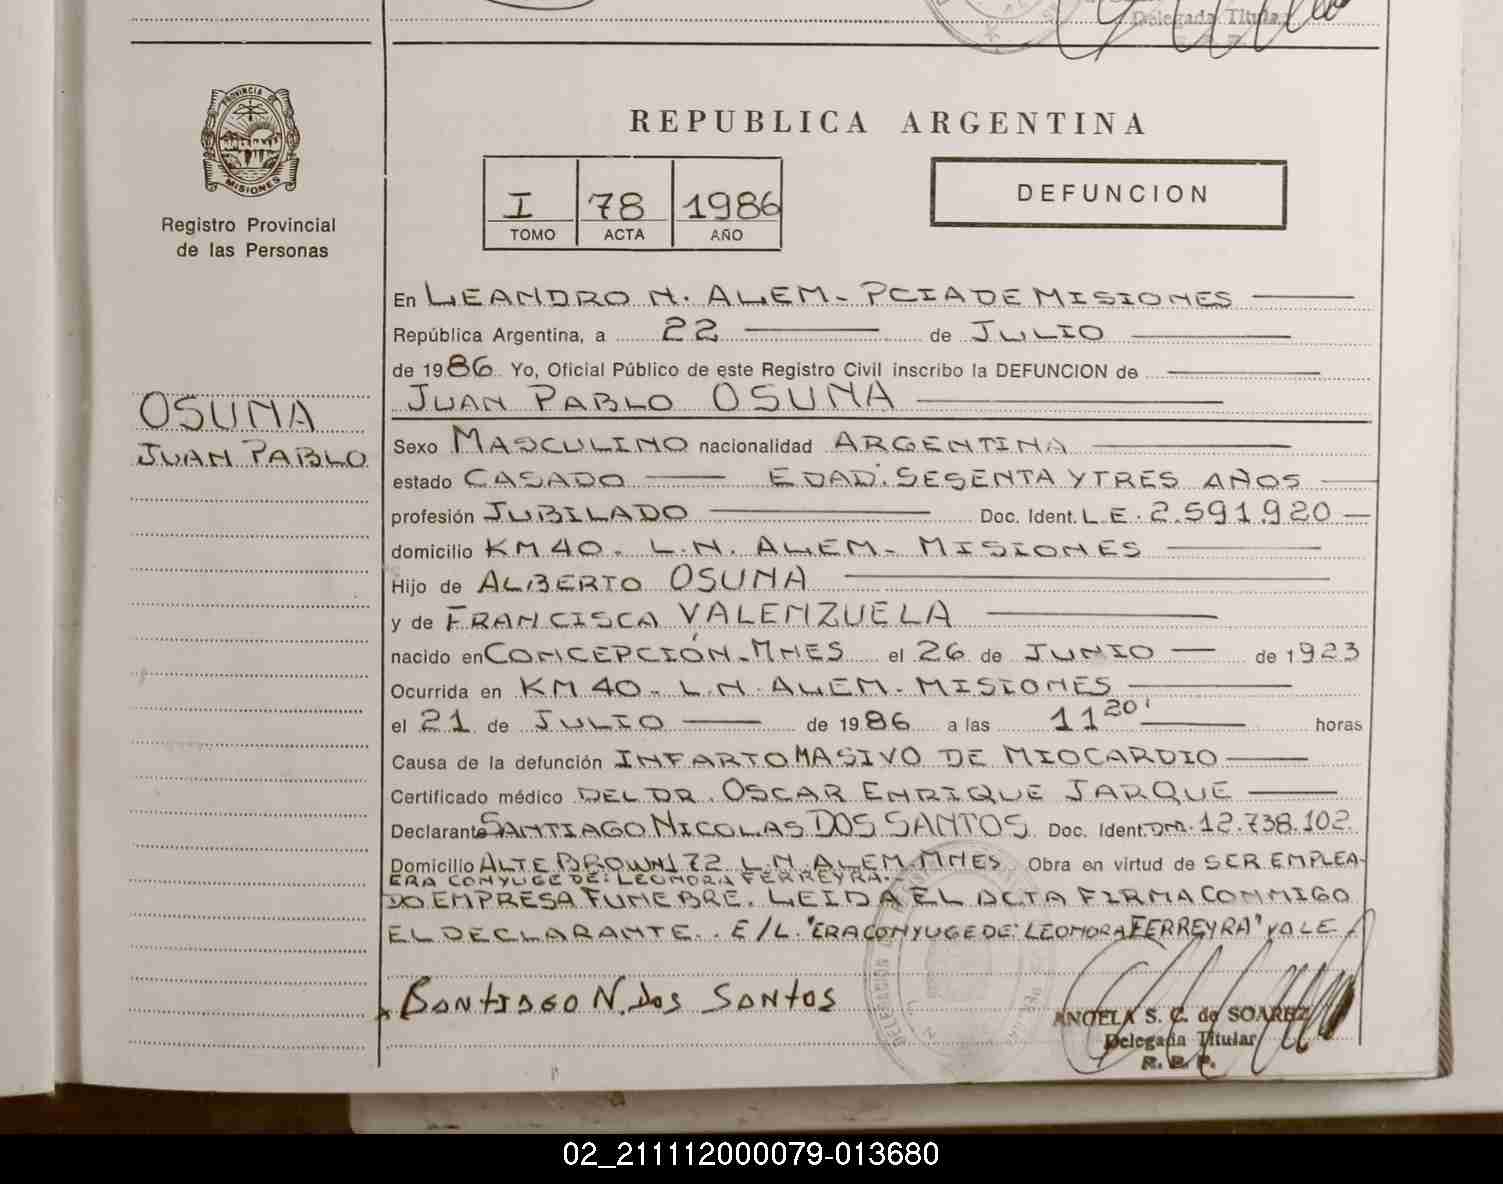 Delegada Titular
PROVINCIA DE
MISIONES
Registro Provincial
de las Personas
REPUBLICA ARGENTINA
I 78 1986
TOMO ACTA AÑO
DEFUNCION
OSUNA
JUAN PABLO
En LEANDRO N. ALEM - PCIA DE MISIONES
República Argentina, a 22 de JULIO
de 1986 Yo, Oficial Público de este Registro Civil inscribo la DEFUNCION de
JUAN PABLO OSUNA
Sexo MASCULINO nacionalidad ARGENTINA
estado CASADO EDAD: SESENTA Y TRES AÑOS
profesión JUBILADO Doc. Ident. L.E. 2.591.920
domicilio KM 40. L.N. ALEM - MISIONES
Hijo de ALBERTO OSUNA
y de FRANCISCA VALENZUELA
nacido en CONCEPCIÓN - MNES el 26 de JUNIO de 1923
Ocurrida en KM 40. L.N. ALEM - MISIONES
el 21 de JULIO de 1986 a las 11 20' horas
Causa de la defunción INFARTO MASIVO DE MIOCARDIO
Certificado médico DEL DR. OSCAR ENRIQUE JARQUE
Declarante SANTIAGO NICOLAS DOS SANTOS Doc. Ident. DNI. 12.738.102
Domicilio ALTE BROWN 172 L.N. ALEM - MNES Obra en virtud de SER EMPLEA-
ERA CONYUGE DE: LEONORA FERREYRA.
DO EMPRESA FUNEBRE. LEIDA EL ACTA FIRMA CONMIGO
EL DECLARANTE. E/L. "ERA CONYUGE DE: LEONORA FERREYRA" VALE
Santiago N. Dos Santos
ANGELA S. C. de SOAREZ
Delegada Titular
R. P. P.
02_211112000079-013680